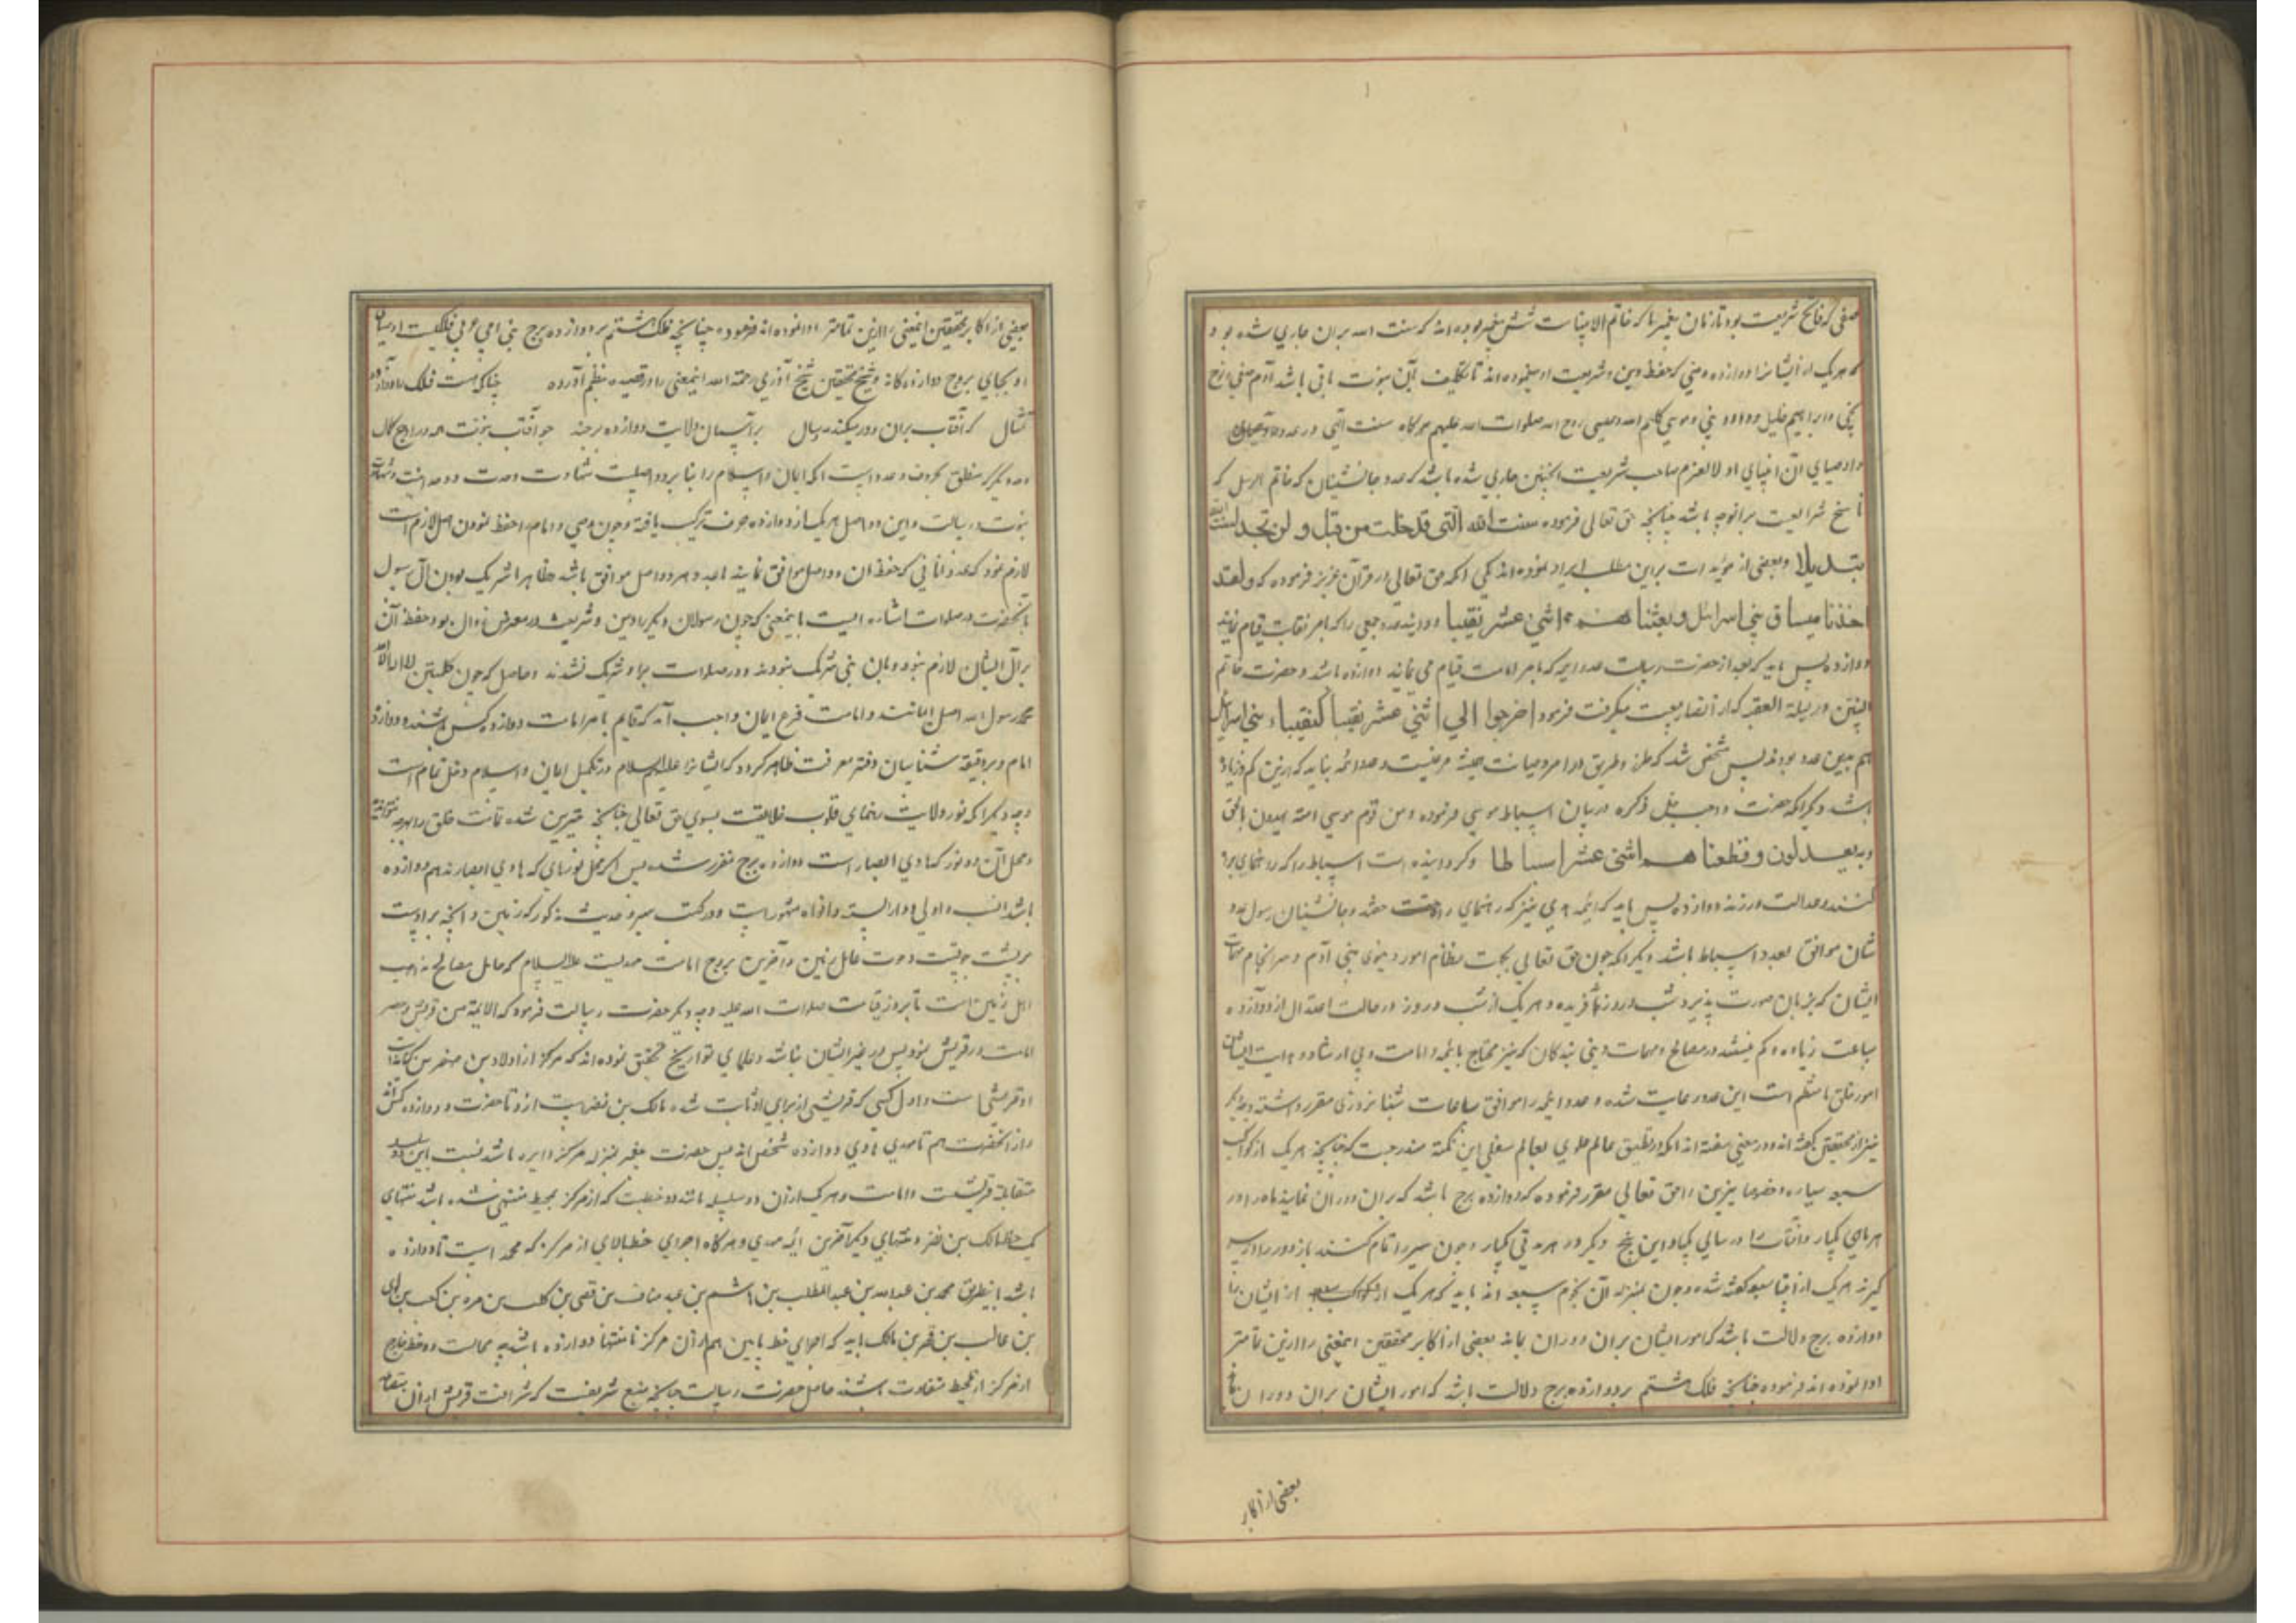 صفی که فاتح شریعت بود تا زمان پیغمبر ما که خاتم الانبیاست شش پیغمبر بوده اند که سنت الله بران جاری شده بود
که هر یک از ایشانرا دوازده وصی که حفظ دین و شریعت او مینموده اند تا تکلیف آن نبوت باقی باشد آدم صفی و نوح
نجی و ابراهیم خلیل و داود نبی و موسی کلیم الله و عیسی روح الله صلوات الله علیهم هرگاه سنت الهی در عدد
و اوصیای آن انبیای اولالعزم صاحب شریعت اینچنین جاری شده باشد که عدد جانشینان که خاتم الرسل که
ناسخ شرایعست برانوجه باشد چنانچه حق تعالی فرموده سنت الله التی قد خلت من قبل و لن تجد لسنت الله
تبدیلا و بعضی از مؤیدات براین مطلب ایراد نموده اند یکی آنکه حق تعالی در قرآن عزیز فرموده که و لقد
اخذنا میساق بنی اسرائیل و بعثنا هم اثنی عشر نقیبا و دانید عدد جمعی را که بامر نقابت قیام نمایند
دوازده پس باید که بعد از حضرت رسالت عدد ایمه که بامر امامت قیام می نمایند دوازده باشد و حضرت خاتم
النبیین در لیلة العقبه که از انصار بیعت میگرفت فرمود اخرجوا الی اثنی عشر نقیبا کنقباء بنی اسرائیل
هم بهمین عدد بودند پس مشخص شد که طرز و طریق در امر وصایت همیشه مرعیست و عدد ائمه نباید که ازین کم و زیاد
باشد دیگر آنکه حضرت واجب جل ذکره در بیان اسباط موسی فرموده و من قوم موسی امته یهدون بالحق
و به یعدلون و قطعنا هم اثنی عشر اسباطا و گردانیده است اسباط را که راهنمای براه
کنند و عدالت ورزند دوازده پس باید که ائمه هدی نیز که راهنمای راه حقند و جانشینان رسول عدد
شان موافق بعدد اسباط باشد دیگر آنکه چون حق تعالی بجهت نظام امور دنیوی بنی آدم و سرانجام مهمات
ایشان که بزمان صورت پذیرد شب و روز آفریده و هر یک از شب و روز در حالت اعتدال از دوازده
ساعت زیاده و کم نیستند در مصالح و مهمات دینی بندگان که نیز محتاج بائمه و امامت و بی ارشاد و هدایت ایشان
امور خلق نا منتظم است این عدد رعایت شده و عدد ایمه را موافق ساعات شبانروزی مقرر داشته وجه دیگر
نیز از محققین گفته اند و در معنی سفته اند آنکه در تطبیق عالم علوی بعالم سفلی این نکته مندرجست که چنانچه هر یک از کواکب
سبعه سیاره و خصوصا نیرین را حق تعالی مقرر فرموده که دوازده برج باشد که بران دوران نمایند ماه در
هر ماهی یکبار و آفتاب را در سالی یکبار و این پنج دیگر در هر مدتی یکبار و چون سیر را تمام کنند باز دور را از سر
گیرند هر یک از اقسام سبعه گفته شده و چون بمنزله آن نجوم سبعه اند باید که هر یک از کواکب سبعه از ایشان را
دوازده برج ولایت باشد که امور ایشان بران دوران یابد بعضی از اکابر محققین اینمعنی را ازین تمامتر
ادا نموده اند فرموده چنانچه فلک هشتم بر دوازده برج دلالت باشد که امور ایشان بران دوران
بعضی از اکابر
بعضی از اکابر محققین اینمعنی را ازین تمامتر ادا نموده اند فرموده چنانچه فلک هشتم بر دوازده برج نبی امی عربی فلکیست اوصیای
او بجای بروج دوازده گانه و شیخ محققین شیخ آذری رحمة الله اینمعنی را در قصیده بنظم آورده چنانکه هست فلک را دوازده
تمثال که آفتاب بران دور میکند مه و سال بر آسمان ولایت دوازده برجند چو آفتاب نبوت همه در اوج کمال
وجه دیگر که متعلق بحروف و عدد است آنکه ایمان و اسلام را بنا بر دو اصلست شهادت وحدت و وحدانیت و شهادت
نبوت و رسالت و این دو اصل هر یک از دوازده حرف ترکیب یافته و چون وصی و امام را حفظ نمودن اصل لازم است
لازم نمود که عدد آنانی که حفظ آن دو اصل موافق نمایند با عدد هر دو اصل موافق باشد ظاهرا شریک بودن آل رسول
بانحضرت در صلوات اشاره ایست باینمعنی که چون رسولان دیگر را دین و شریعت در معرض زوال بود حفظ آن
بر آل ایشان لازم نبود و بان نبی شریک نبودند و در صلوات براو شریک نشدند و حاصل که چون کلمتین لا اله الا الله
محمد رسول الله اصل ایمانند و امامت فرع ایمان واجب آمد که قایم بامر امامت دوازده کس باشند و دوازده
امام و بر دقیقه شناسان دفتر معرفت ظاهر گردد که ایشانرا علیهم السلام در تکمیل ایمان و اسلام دخل تمام است
وجه دیگر آنکه نور ولایت رهنمای قلوب خلایقست بسوی حق تعالی چنانچه نیرین شده تا
و محل آن دو نور که هادی ابصار است دوازده برج مقرر شده پس اگر محل نورهای که هادی ابصارند هم دوازده
باشد انسب و اولی و در السنه و افواه مشهور است و در کتب سیر و حدیث مذکور که زمین و آنچه بر اوست
بر پشت حوتست و حوت حامل زمین و آخرین بروج امامت مهدیست علیه السلام که حامل مصالح مذهب
اهل زمین است تا بروز قیامت صلوات الله علیه وجه دیگر حضرت رسالت فرمود که الایمة من قریش و حصر
امامت در قریش نمود پس در غیر ایشان نباشد و علمای تواریخ تحقیق نموده اند که مرکز از اولاد بن نضر بن کنانه است
او قریشی است و اول کسی که قریشی از برای او ثابت شده مالک بن نضر است از و تا حضرت دوازده کس
و از آنحضرت هم تا مهدی هادی دوازده شخص اند پس حضرت پیغمبر بمنزله مرکز دایره باشد نسبت باین دو سلسله
متقابله قریشیت و امامت و هر یک از آن دو سلسله مانند دو خطیست که از مرکز بمحیط منتهی شده باشد منتهای
یک خط مالک بن نضر و منتهای دیگر آخرین ائمه مهدی و هرگاه اجزای خط بالای از مرکز که محمد است تا دوازده
باشد باینطریق محمد بن عبدالله بن عبدالمطلب بن هاشم بن عبد مناف بن قصی بن کلاب بن مره بن کعب بن لوی
بن غالب بن فهر بن مالک باید که اجزای خط پایین هم از آن مرکز تا منتها دوازده باشد چه محالست دو خط خارج
از مرکز از محیط متفاوت باشند حاصل حضرت رسالت چنانچه منبع شریفست که شرافت قریش از آن